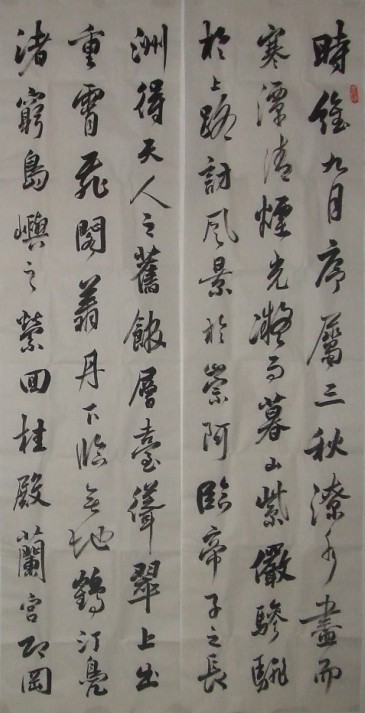 時維九月序屬三秋潦水盡而
寒潭清煙光凝而暮山紫儼驂騑
於上路訪風景於崇阿臨帝子之長
洲得天人之舊館層臺聳翠上出
重霄飛閣翔丹下臨無地鶴汀鳧
渚窮島嶼之縈回桂殿蘭宮即岡